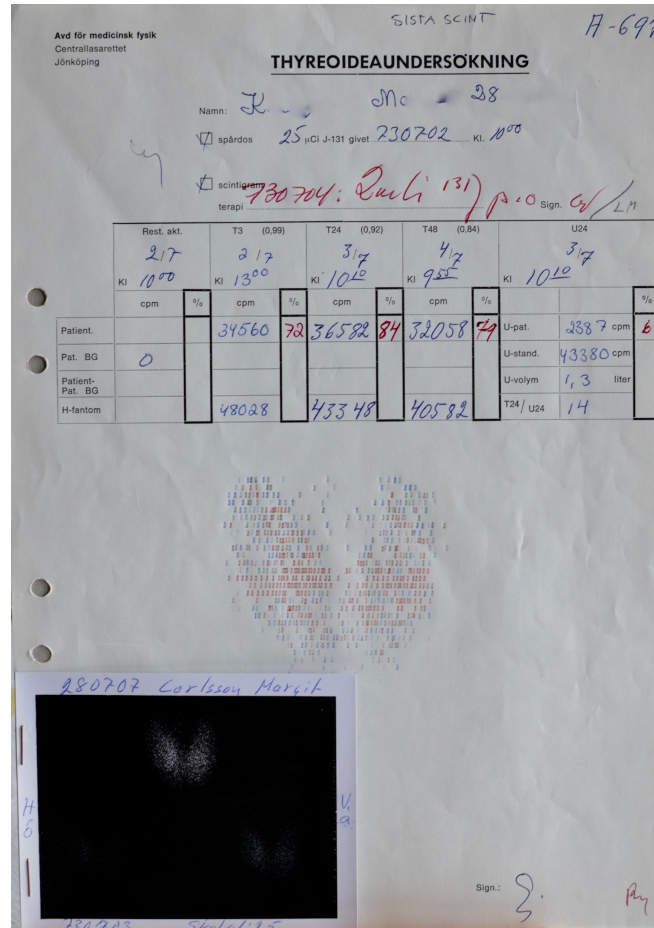 SISTA SCINT
A-697
Avd för medicinsk fysik
Centrallasarettet
Jönköping
THYREOIDEAUNDERSÖKNING
Namn: K Ma 28
spårdos 25 μCi J-131 givet 730702 Kl. 10⁰⁰
scintigram
730704: 2mCi 131J p.o
terapi Sign. LM
Rest. akt. T3 (0,99) T24 (0,92) T48 (0,84) U24
2/7 2/7 3/7 4/7 3/7
Kl 10⁰⁰ Kl 13⁰⁰ Kl 10¹⁰ Kl 9⁵⁵ Kl 10¹⁰
cpm % cpm % cpm % cpm % %
Patient. 34560 72 36582 84 32058 79 U-pat. 2387 cpm 6
Pat. BG 0 U-stand. 43380 cpm
Patient- U-volym 1,3 liter
Pat. BG
H-fantom 48028 43348 40582 T24/U24 14
280707 Carlsson Margit
Hö
Vä
730703
Sign.: